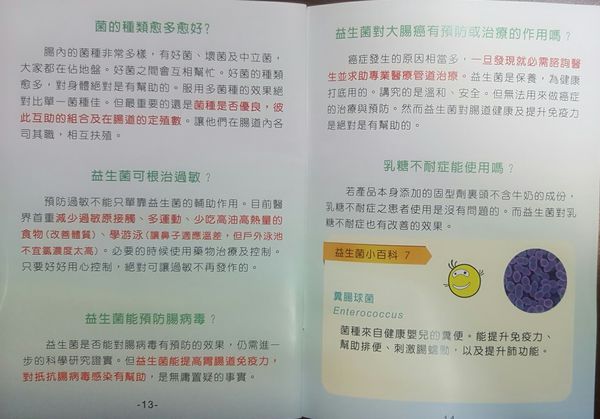 菌的種類愈多愈好？
腸內的菌種非常多樣，有好菌、壞菌及中立菌，
大家都在佔地盤。好菌之間會互相幫忙。好菌的種類
愈多，對身體絕對是有幫助的。服用多菌種的效果絕
對比單一菌種佳。但最重要的還是菌種是否優良，彼
此互助的組合及在腸道的定殖數。讓他們在腸道內各
司其職，相互扶殖。
益生菌可根治過敏？
預防過敏不能只單靠益生菌的輔助作用。目前醫
界首重減少過敏原接觸、多運動、少吃高油高熱量的
食物(改善體質)、學游泳(讓鼻子適應溫差，但戶外泳池
不宜氯濃度太高)。必要的時候使用藥物治療及控制。
只要好好用心控制，絕對可讓過敏不再發作的。
益生菌能預防腸病毒？
益生菌是否能對腸病毒有預防的效果，仍需進一
步的科學研究證實。但益生菌能提高胃腸道免疫力，
對抵抗腸病毒感染有幫助，是無庸置疑的事實。
-13-
益生菌對大腸癌有預防或治療的作用嗎？
癌症發生的原因相當多，一旦發現就必需諮詢醫
生並求助專業醫療管道治療。益生菌是保養，為健康
打底用的。講究的是溫和、安全。但無法用來做癌症
的治療與預防。然而益生菌對腸道健康及提升免疫力
是絕對是有幫助的。
乳糖不耐症能使用嗎？
若產品本身添加的固型劑裏頭不含牛奶的成份，
乳糖不耐症之患者使用是沒有問題的。而益生菌對乳
糖不耐症也有改善的效果。
益生菌小百科 7
糞腸球菌
Enterococcus
菌種來自健康嬰兒的糞便。能提升免疫力、
幫助排便、刺激腸蠕動，以及提升肺功能。